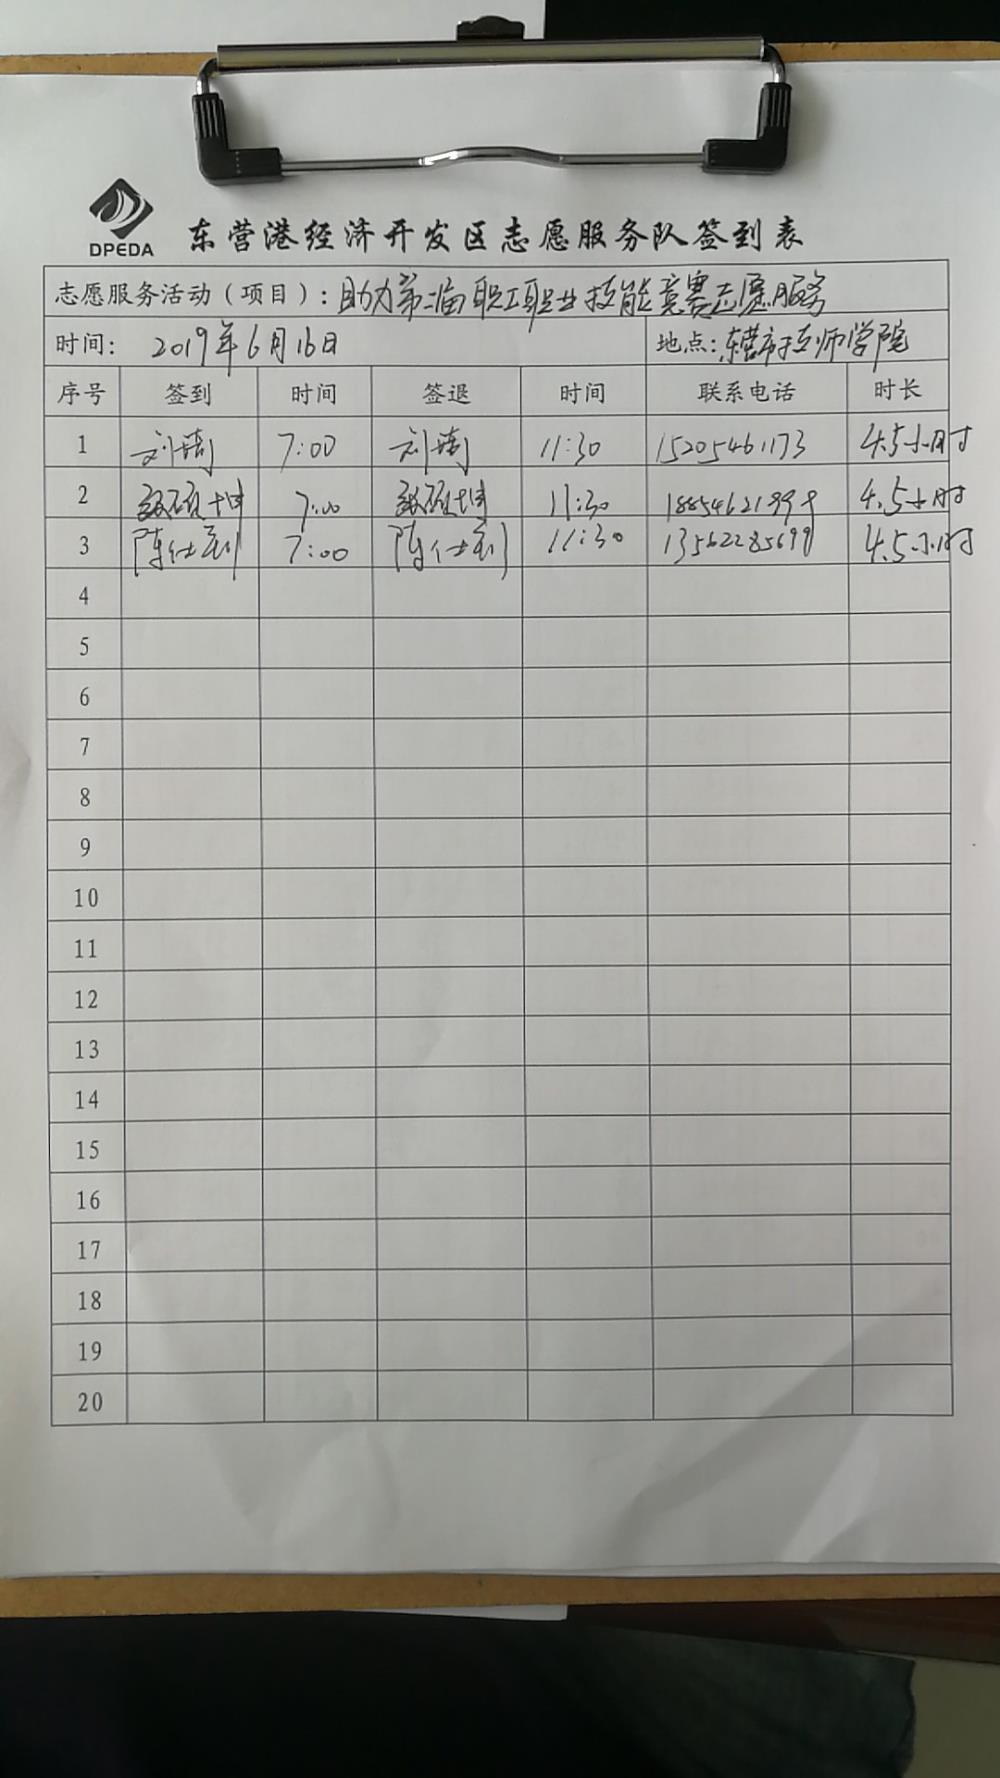 DPEDA 东营港经济开发区志愿服务队签到表
志愿服务活动（项目）：助力第二届职工职业技能竞赛志愿服务
时间： 2019年6月16日 地点：东营市技师学院
序号 签到 时间 签退 时间 联系电话 时长
1 刘琦 7:00 刘琦 11:30 15205461173 4.5小时
2 7:00 11:30 4.5小时
3 7:00 11:30 13562285699 4.5小时
4
5
6
7
8
9
10
11
12
13
14
15
16
17
18
19
20